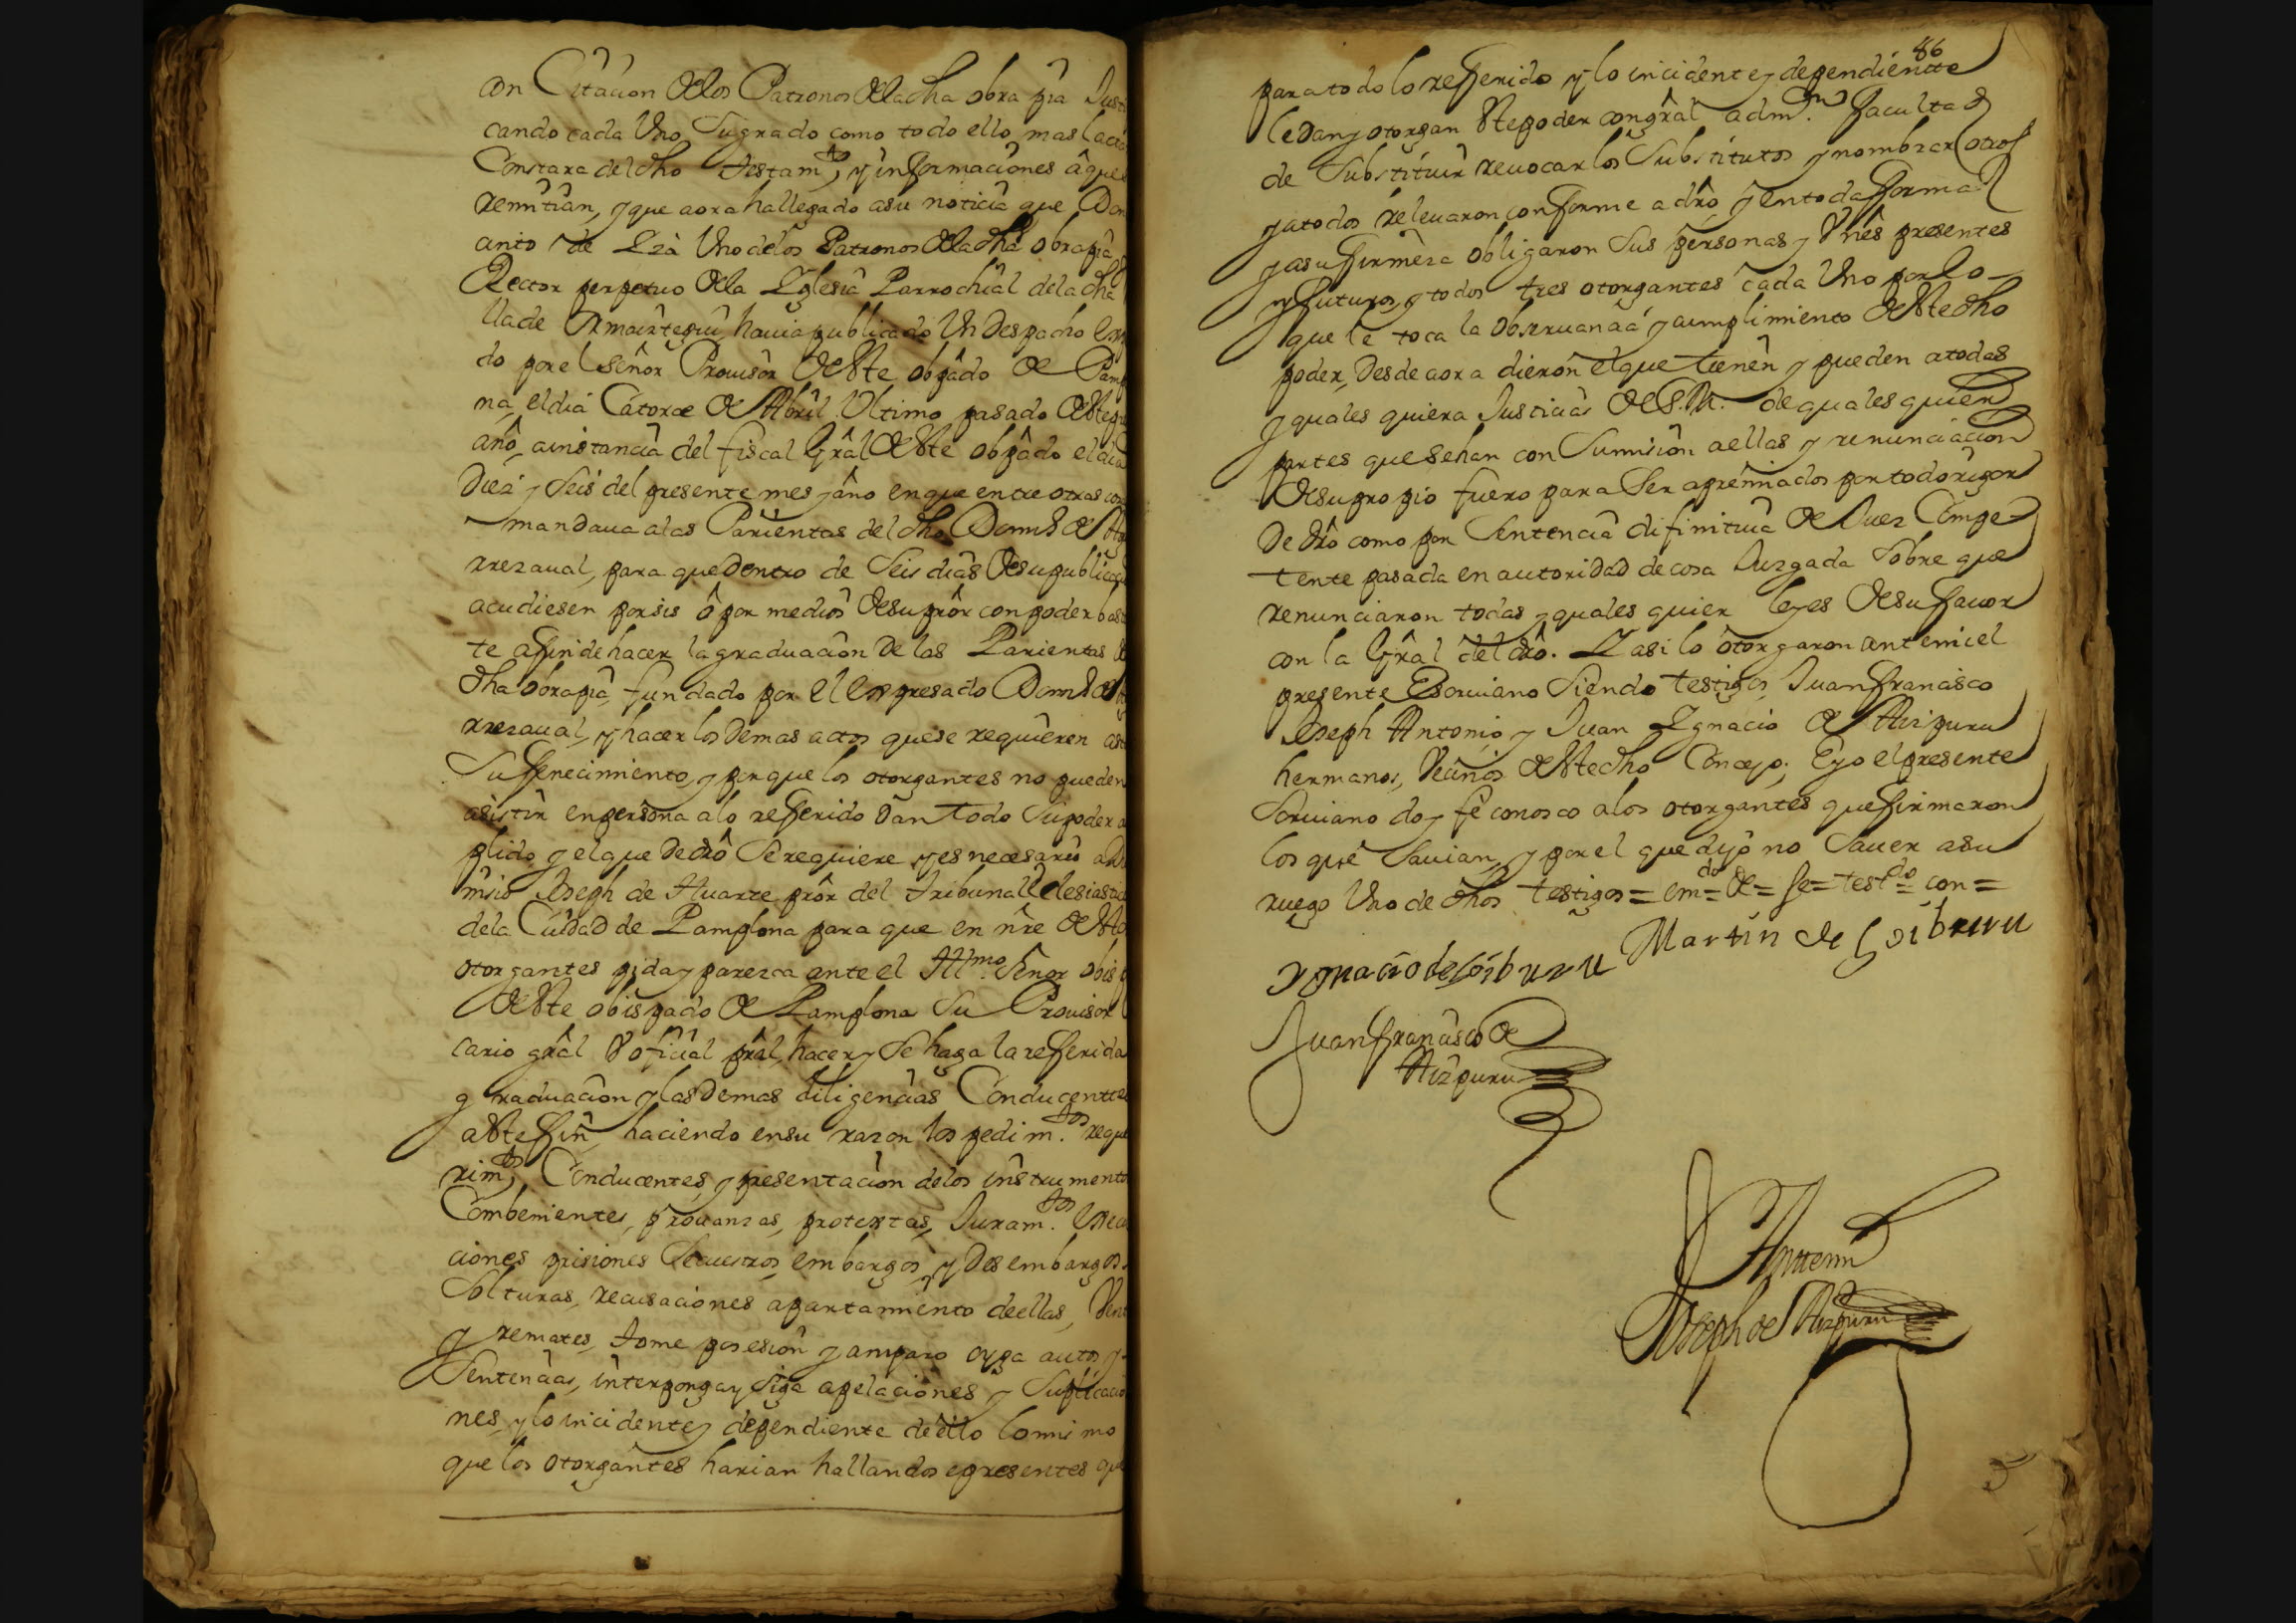 con Citacion de los Patronos de la dha obra pia Justi
cando cada Uno Su grado como todo ello mas
Constara del dho testam.to, y informaciones â que
remitian, y que aora ha llegado a su noticia que Don
anio de Uno de los Patronos de la dha obra pia
Rector perpetuo de la Yglesia Parrochial de la dha
lla de hauia publicado Un Despacho
do por el señor Prouisor de Ste obpâdo de Pamp
na, el dia Catorce de Abril Ultimo pasado de Ste
año, a instancia del fiscal Grâl de Ste obpâdo el dia
Diez y Seis del presente mes y año en que entre otras
mandaua a las Parientas del dho Dom.o de
rrezaual, para que Dentro de Seis dias de su
acudiesen por sis ô por medio de su prôr con poder bas
te a fin de hacer la graduacion De las Parientas
dha obra pia fundado por el Dom.o de
rrezaual, y hacer los Demas actos que se requieren
Su fenecimiento, y porque los otorgantes no pueden
asistir en persona a lo referido Dan todo Su poder
plido, y el que De drô Se requiere y es necesario
misio Joseph de Huarte prôr del tribunal eclesiastic
de la Ciudad de Pamplona para que en nre de Sto
otorgantes pida y parezca ante el Illmo Señor obis
de Ste obispado de Pamplona Su Prouisor
cario grâl V oficial prâl, hacer y Se haga la referida
graduacion y las Demas diligencias Conducentte
a Ste fin, haciendo en su razon los pedim.tos requ
rim.tos Conducentes, y presentacion de los instrumento
Combenientes, prouanzas, protextas, Juram.tos
ciones prisiones Secuestros, embargos, y Desembargos
Solturas, recusaciones apartamiento de ellas,
y remates, tome posesion y amparo oyga autos y
Sentencias, interponga y Siga apelaciones y Suplicacio
nes, y lo incidente y dependiente de ello lo mismo
que los otorgantes harian hallandose presentes
86
para todo lo referido y lo incidente y dependientte
le Dan y otorgan Ste poder con grâl adm.on facultad
de Substituir reuocar los Substitutos y nombrar otros
y a todos releuaron conforme a drô, y en toda forma
y a su firmeza obligaron Sus personas y Vnês presentes
y futuros, y todos tres otorgantes cada Uno por lo
que le toca la obseruancia y cumplimiento de Ste dho
poder, Desde aora dieron el que tienen y pueden a todas
y quales quiera Justicias de S.M. de quales quier
partes que Sehan con Sumision a ellas y renunciacion
de su propio fuero para Ser apremiados por todo rigor
De drô como por Sentencia difinitiua de Juez Compe
tente pasada en autoridad de cosa Juzgada Sobre que
renunciaron todas y quales quier leyes de su fauor
con la Grâl del drô. Y asi lo otorgaron ante mi el
presente Escriuano Siendo testigos Juan francisco
Joseph Antonio y Juan Ygnacio de Aizpuru
hermanos, Vecinos de Ste dho Concejo; E yo el presente
Scriuano doy fê conosco a los otorgantes que firmaron
los que Sauian, y por el que dijo no Sauer a su
ruego Uno de dhos testigos = em.do = de = se = test.do = con =
Martin de Soiburu
Ygnacio de Soiburu
Juan francisco de
Aizpuru
Anttemi
Joseph de Aizpuru